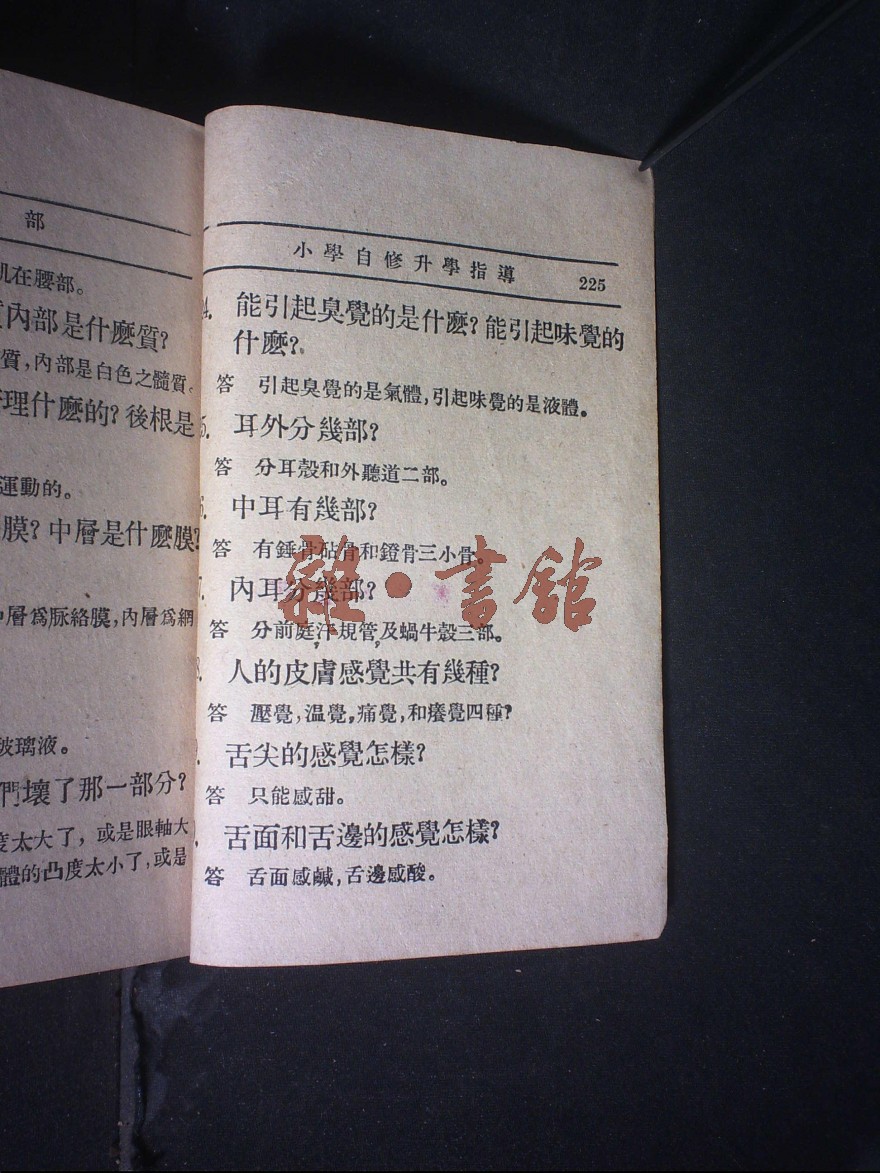 部
在腰部。
內部是什麽質?
質,內部是白色之髓質。
理什麽的?後根是
運動的。
膜?中層是什麽膜?
層爲脈絡膜,內層爲網
玻璃液。
們壞了那一部分?
度太大了,或是眼軸大
體的凸度太小了,或是
小學自修升學指導 225
4. 能引起臭覺的是什麽?能引起味覺的
什麽?
答 引起臭覺的是氣體,引起味覺的是液體。
5. 耳外分幾部?
答 分耳殼和外聽道二部。
6. 中耳有幾部?
答 有錘骨砧骨和鐙骨三小骨。
7. 內耳分幾部?
答 分前庭,汗規管,及蝸牛殼三部。
8. 人的皮膚感覺共有幾種?
答 壓覺,温覺,痛覺,和癢覺四種?
舌尖的感覺怎樣?
答 只能感甜。
舌面和舌邊的感覺怎樣?
答 舌面感鹹,舌邊感酸。
雜·書館